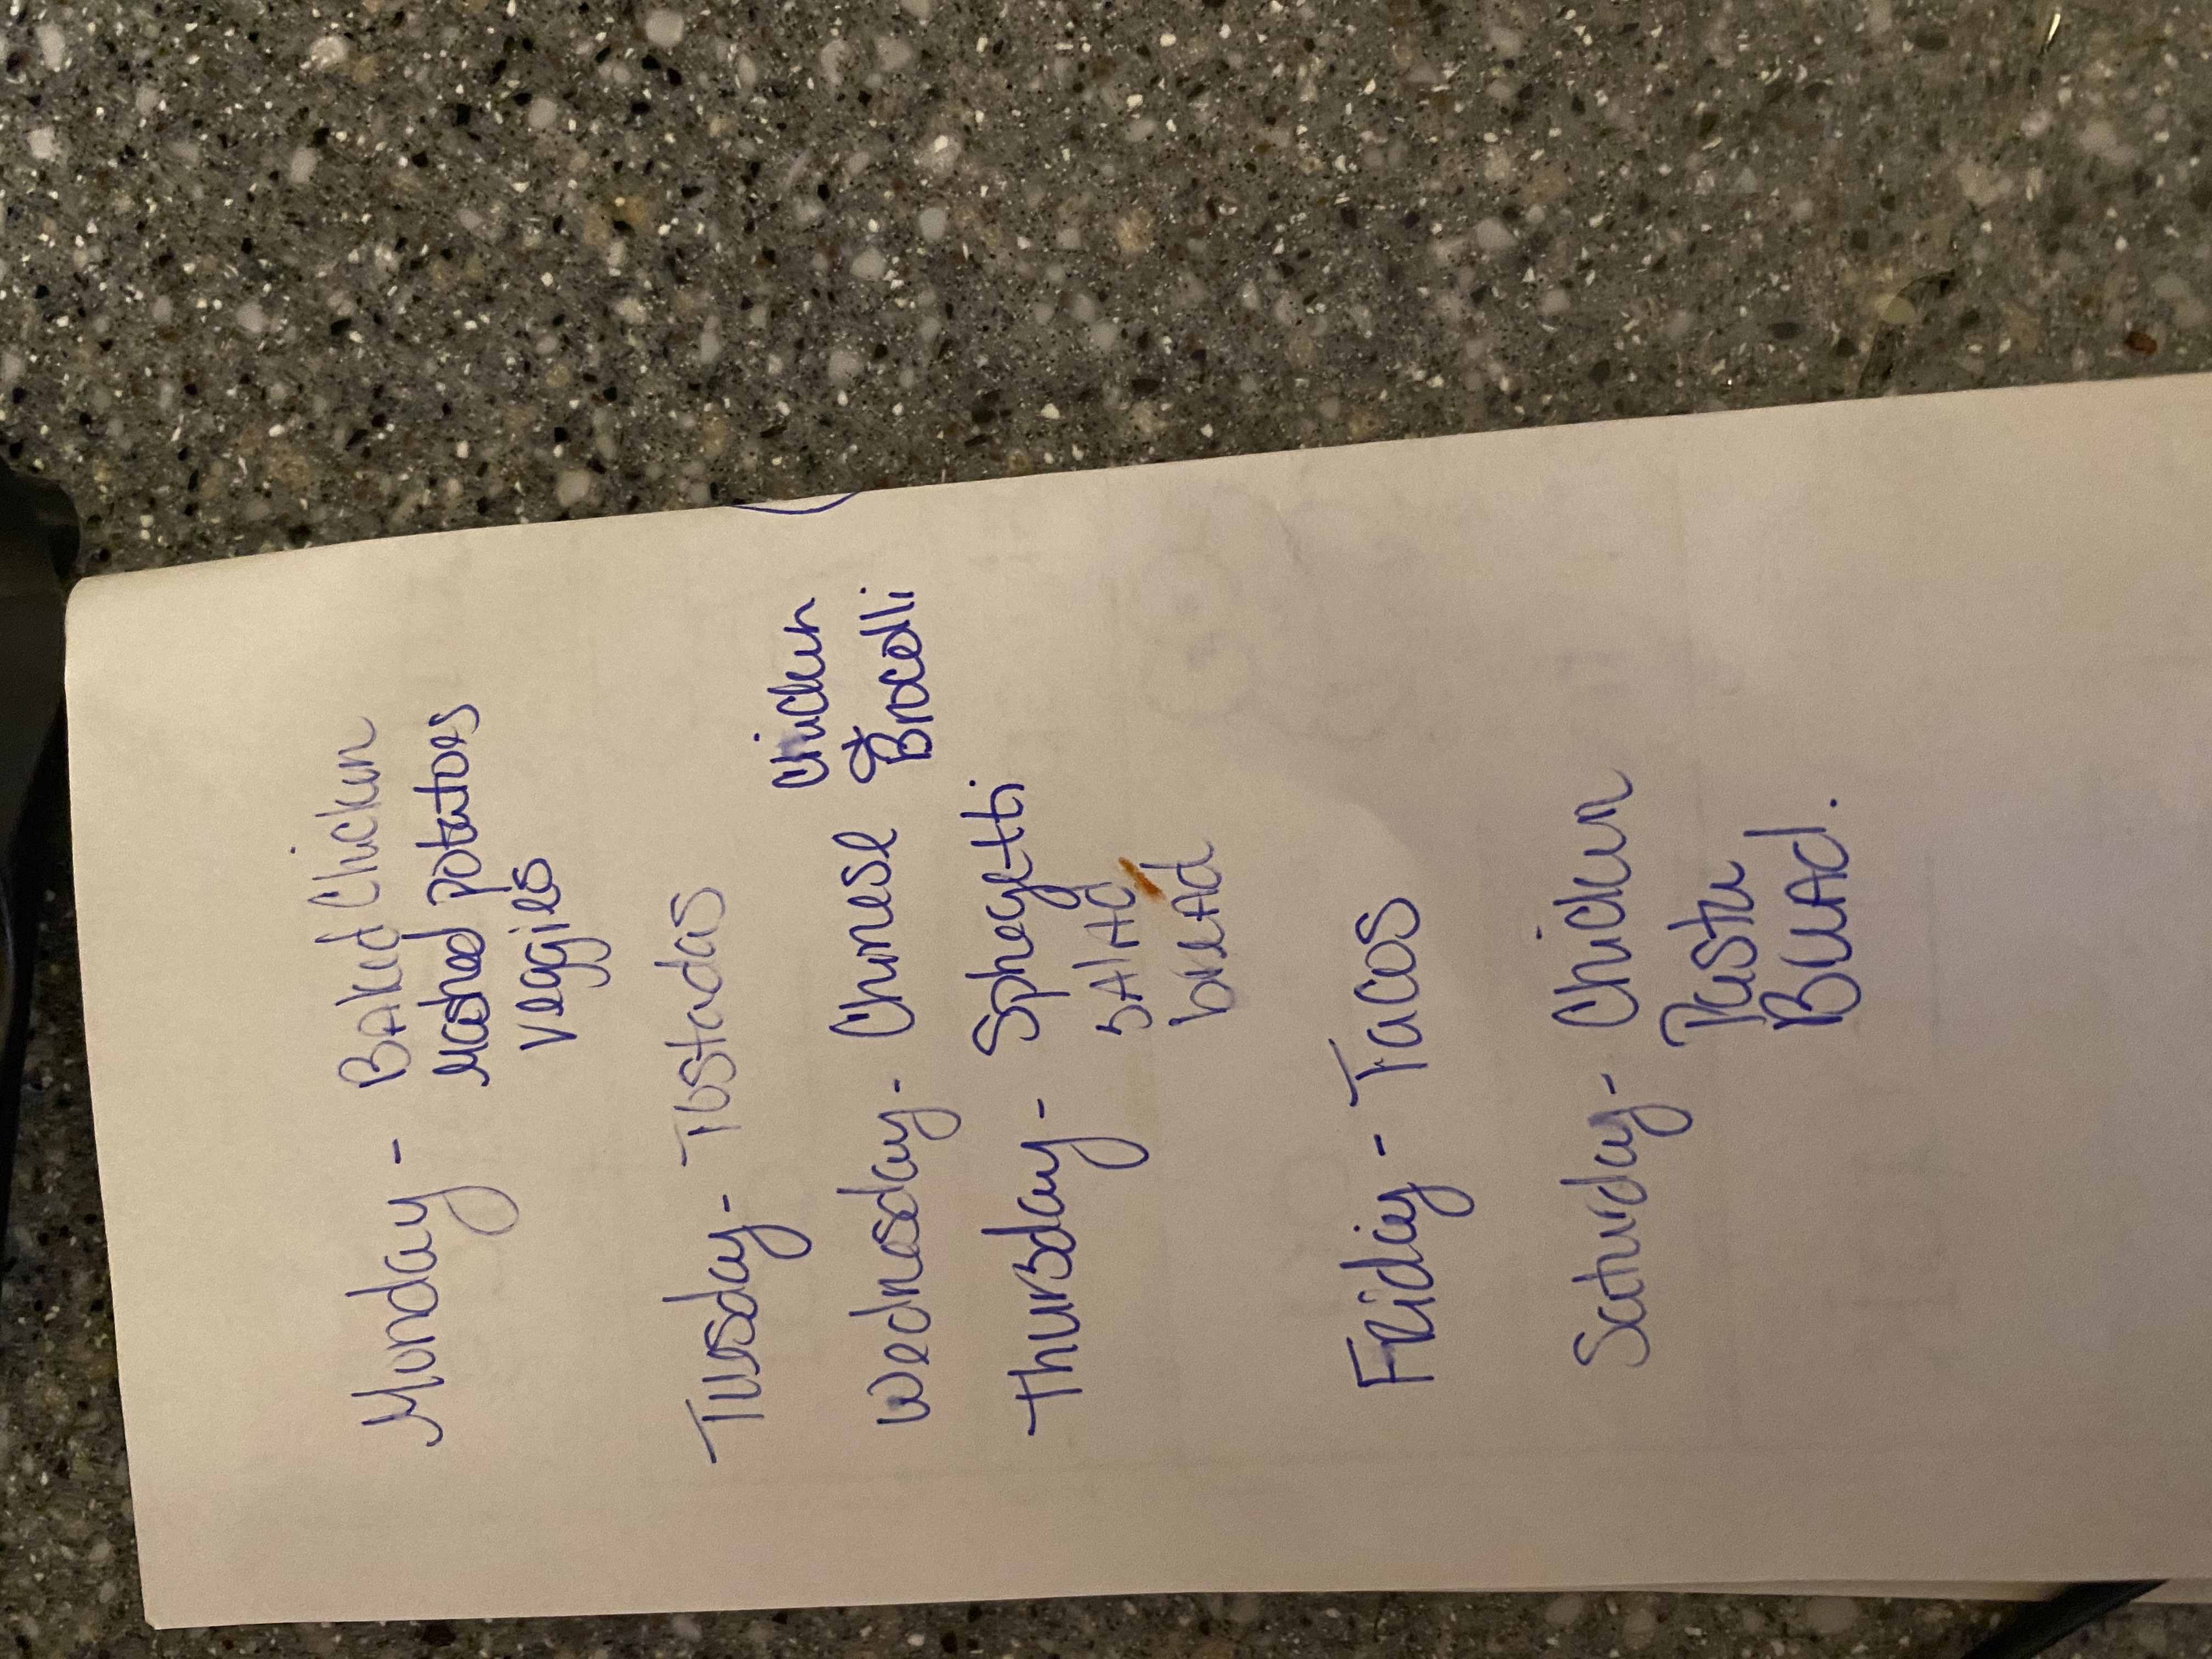 Monday - Baked Chicken
Mashed potatoes
veggies
Tuesday - Tostadas
Wednesday - Chinese Chicken
& Brocolli
Thursday - Sphagetti
SALAD
breAd
FRiday - Tacos
Saturday - Chicken
Pasta
BreAd.